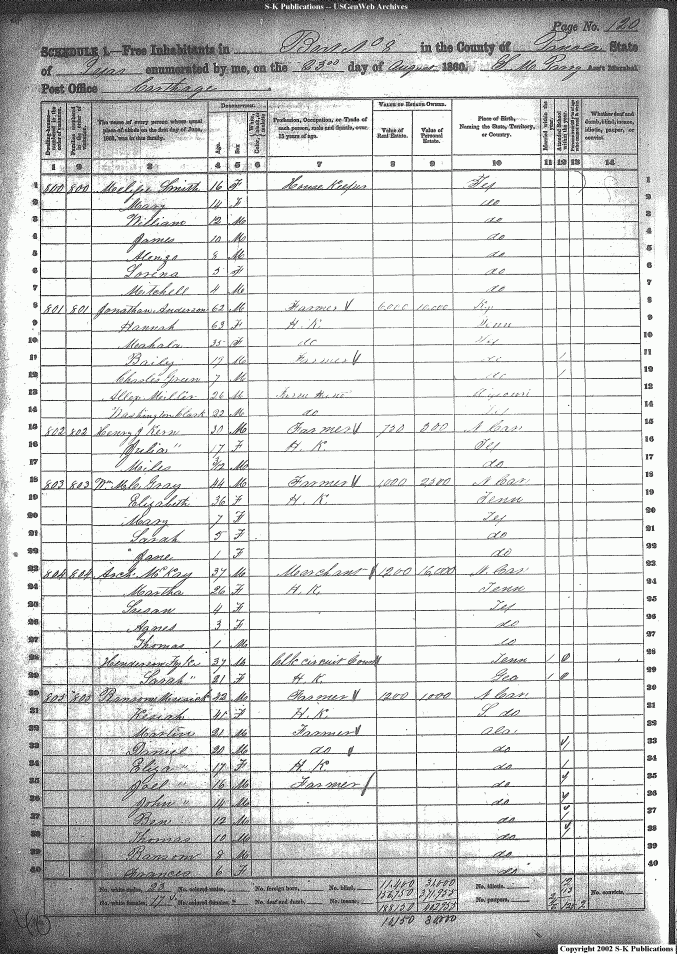 S-K Publications -- USGenWeb Archives
Page No. 120
SCHEDULE 1.—Free Inhabitants in Beat No 8 in the County of Panola State
of Texas enumerated by me, on the 23rd day of August 1860. Ass't Marshal.
Post Office Carthage
Dwelling-houses numbered in the order of visitation.
Families numbered in the order of visitation.
The name of every person whose usual place of abode on the first day of June, 1860, was in this family.
DESCRIPTION.
Age.
Sex.
Color,
Profession, Occupation, or Trade of each person, male and female, over 15 years of age.
VALUE OF ESTATE OWNED.
Value of Real Estate.
Value of Personal Estate.
Place of Birth, Naming the State, Territory, or Country.
Married within the year.
Attended School within the year.
Whether deaf and dumb, blind, insane, idiotic, pauper, or convict.
1 2 3 4 5 6 7 8 9 10 11 12 13 14
1 800 800 Smith 16 F House Keeper Tex 1
2 Mary 14 F do 2
3 William 12 M do 3
4 James 10 M do 4
5 Alonzo 8 M do 5
6 Lorena 5 F do 6
7 Mitchell 4 M do 7
8 801 801 Jonathan Anderson 62 M Farmer 6000 10000 Ky 8
9 Hannah 63 F H. K. Tenn 9
10 Mahala 35 F do 10
11 Baily 19 M Farmer do 1 11
12 Charles Green 7 M do 1 12
13 Miller 26 M Missouri 13
14 Washington Clark 22 M do 14
15 802 802 Henry J Kern 30 M Farmer 750 300 N Car 15
16 Julia " 17 F H. K. Tex 16
17 Miles M do 17
18 803 803 Wm Mc Gray 44 M Farmer 1000 2500 N Car 18
19 Elizabeth 36 F H. K. Tenn 19
20 Mary 7 F Tex 20
21 Sarah 5 F do 21
22 " Jane 1 F do 22
23 804 804 Arch McKay 37 M Merchant 1200 16,000 N. Car 23
24 Martha 26 F H. K. Tenn 24
25 Susan 4 F Tex 25
26 Agnes 3 F do 26
27 Thomas 1 M do 27
28 Henderson Fyke 37 M Clk circuit Court Tenn 1 0 28
29 Sarah " 21 F H. K. Geo 1 0 29
30 805 805 Ransom 42 M Farmer 1200 1000 N Car 30
31 Kisiah 45 F H. K. S. do 31
32 Martin 21 M Farmer Ala 32
33 Daniel 20 M do do 33
34 Eliza " 17 F H. K. do 1 34
35 Joel " 16 M Farmer do 35
36 John " 14 M do 36
37 Ben 12 M do 37
38 Thomas 10 M do 38
39 Ransom 8 M do 39
40 Frances 6 F do 40
No. white males, 23 No. colored males, No. foreign born, No. blind, 11,400 No. idiotic,
No. white females, 17 No. colored females, No. deaf and dumb, No. insane, No. paupers, No. convicts,
Copyright 2002 S-K Publications